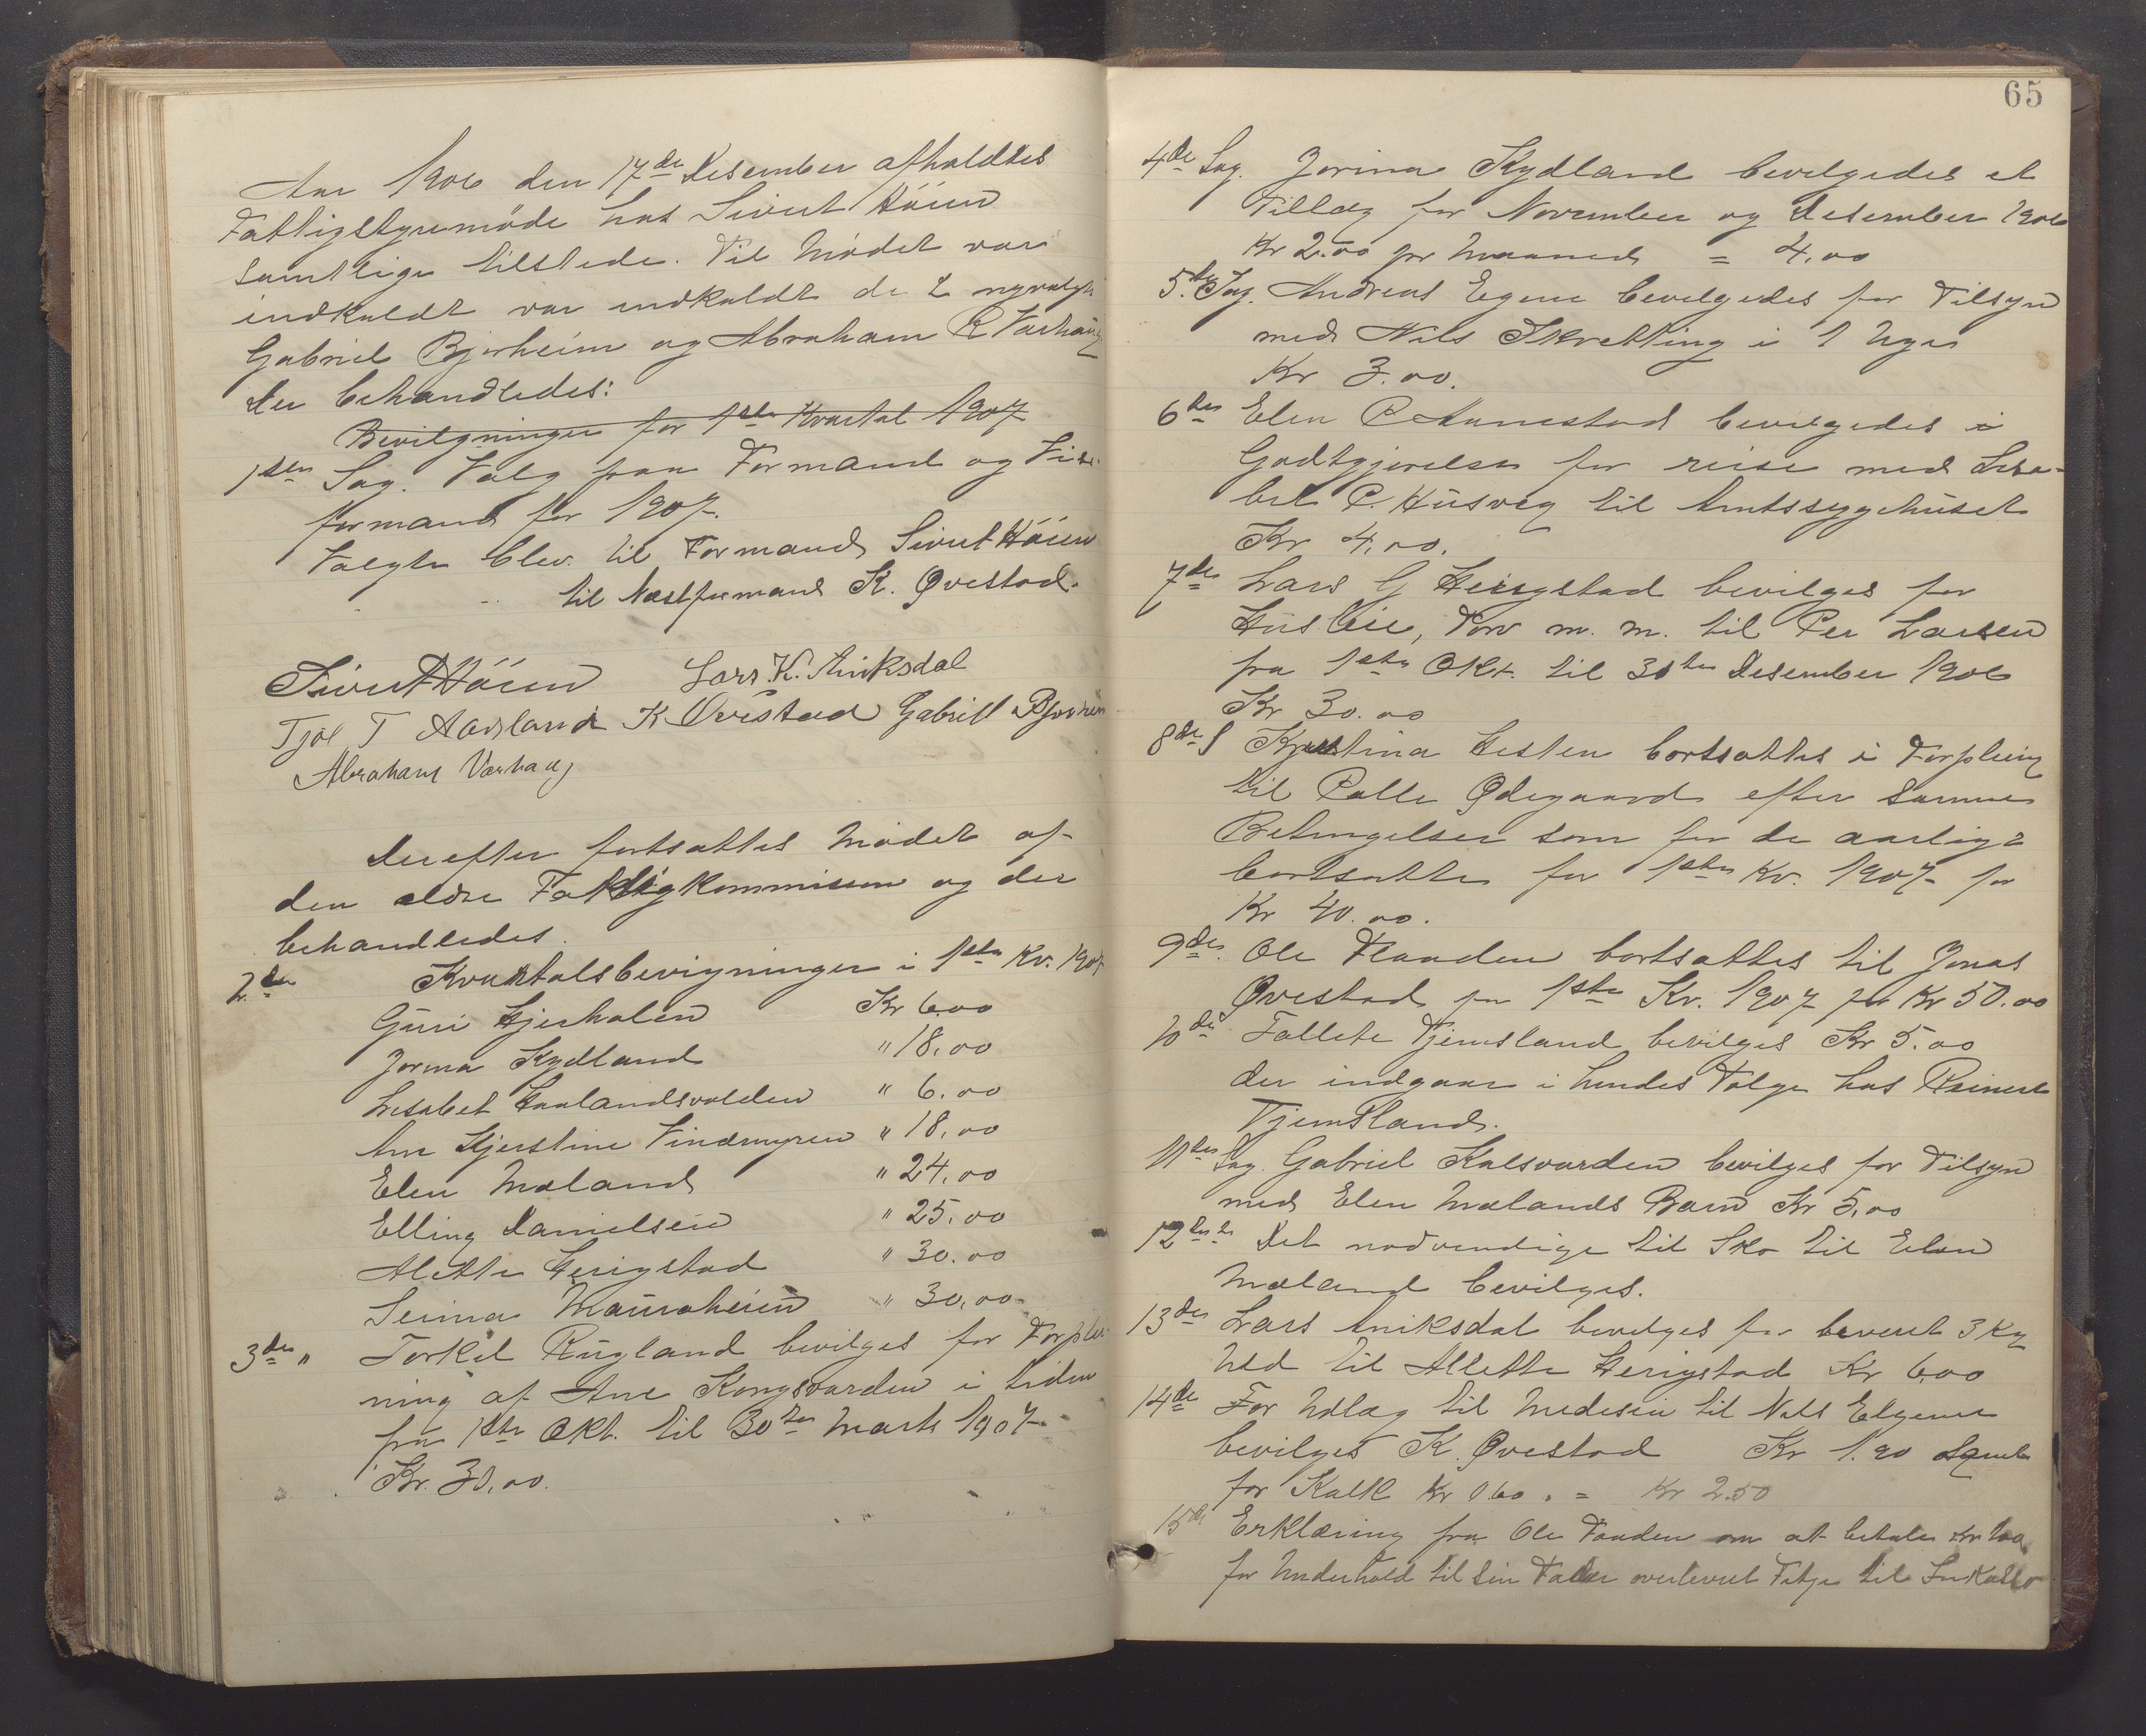 Aar 1906 den 17de Desember afholdtes
Fattigstyremöde hos Sivert Höien
samtlige tilstede. Til Mödet var
indkaldt var indkaldt de 2 nyvalgte
Gabriel Bjorheim og Abraham R Varhaug
der behandledes:
Bevilgninger for 1ste Kvartal 1907
1ste Sag. Valg paa Formand og Vise-
formand for 1907.
Valgte blev til Formand Sivert Höien
til Næstformand K. Øvestad.
Sivert Höien Lars K. Aniksdal
T Aarsland K Øvestad Gabriel Bjorheim
Abraham Varhaug
Derefter fortsattes Mödet af
den ældre Fattigkommission og der
behandledes.
2den Kvartalsbevigninger i 1ste Kv. 1907
Guri Hjerholen Kr 6.00
Jorina Kydland " 18.00
Lisabet Haalandsvolden " 6.00
Ane Kjerstine Vindmyren " 18.00
Elen Mæland " 24.00
Elling Danielsen " 25.00
Alette Herigstad " 30.00
Serina Mauraheien " 30.00
3die " Torkel Rugland bevilges for Forplei-
ning af Ane Kongsvarden i tiden
fra 1ste Okt. til 30te Marts 1907
Kr. 30.00.
65
4de Sag. Jorina Kydland bevilgedes et
Tillæg for November og Desember 1906
Kr 2.00 pr Maaned = 4.00
5te Sag. Andreas Egene bevilgedes for Tilsyn
med Nils Skretting i 1 Uge
Kr 3.00.
6te Elen Aanestad bevilgedes i
Godtgjørelse for reise med Lisa-
bet P. Husveg til Amtssygehuset
Kr 4.00.
7de Lars G Herigstad bevilges for
Husleie, Torv m. m. til Per Larsen
fra 1ste Okt. til 30te Desember 1906
Kr 30.00
8de S Kjerstina Hesten bortsattes i Forpleining
til Palle Ødegaard efter samme
Betingelser som for de aarlige
bortsatte for 1ste Kv. 1907 for
Kr 40.00.
9de. Ole Flaaden bortsattes til Jonas
Øvestad for 1ste Kv. 1907 for Kr 50.00
10de Tallete Tjemsland bevilges Kr 5.00
der indgaar i hendes Følge hos Reinert
Tjemsland.
11te Sag. Gabriel Kalsvarden bevilges for Tilsyn
med Elen Mælands Barn Kr 5.00
12te Det nødvendige til Sko til Elen
Mæland bevilges.
13de Lars Aniksdal bevilges for leveret 3 Kg
Uld til Allette Herigstad Kr 6.00
14de For Udlæg til Medesin til Nils
bevilges K. Øvestad Kr 1.90 samt
for Kalk Kr 0.60. = Kr 2.50
15de Erklæring fra Ole Faaden om at betale Kr
for Underhold til sin Fader overleveret til Inkasso